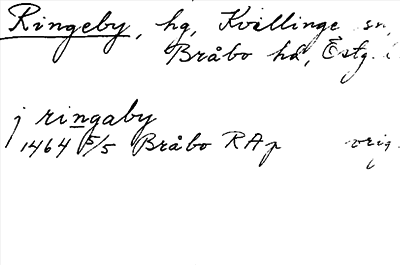 Ringeby, hg, Kvillinge sn,
Bråbo hd, Östg.
j ringaby
1464 5/5 Bråbo RAp orig.